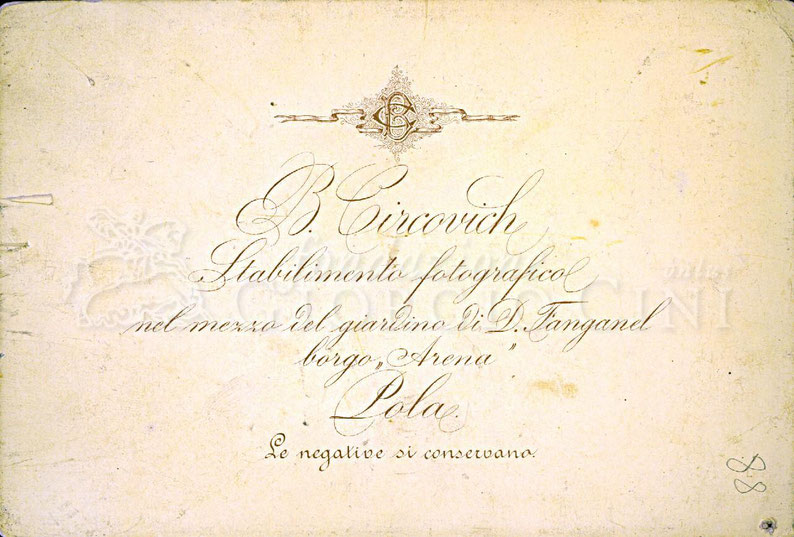 BC
B. Circovich
Stabilimento fotografico
nel mezzo del giardino di D. Fanganel
borgo „Arena"
Pola.
Le negative si conservano.
GIORGIO CINI
88